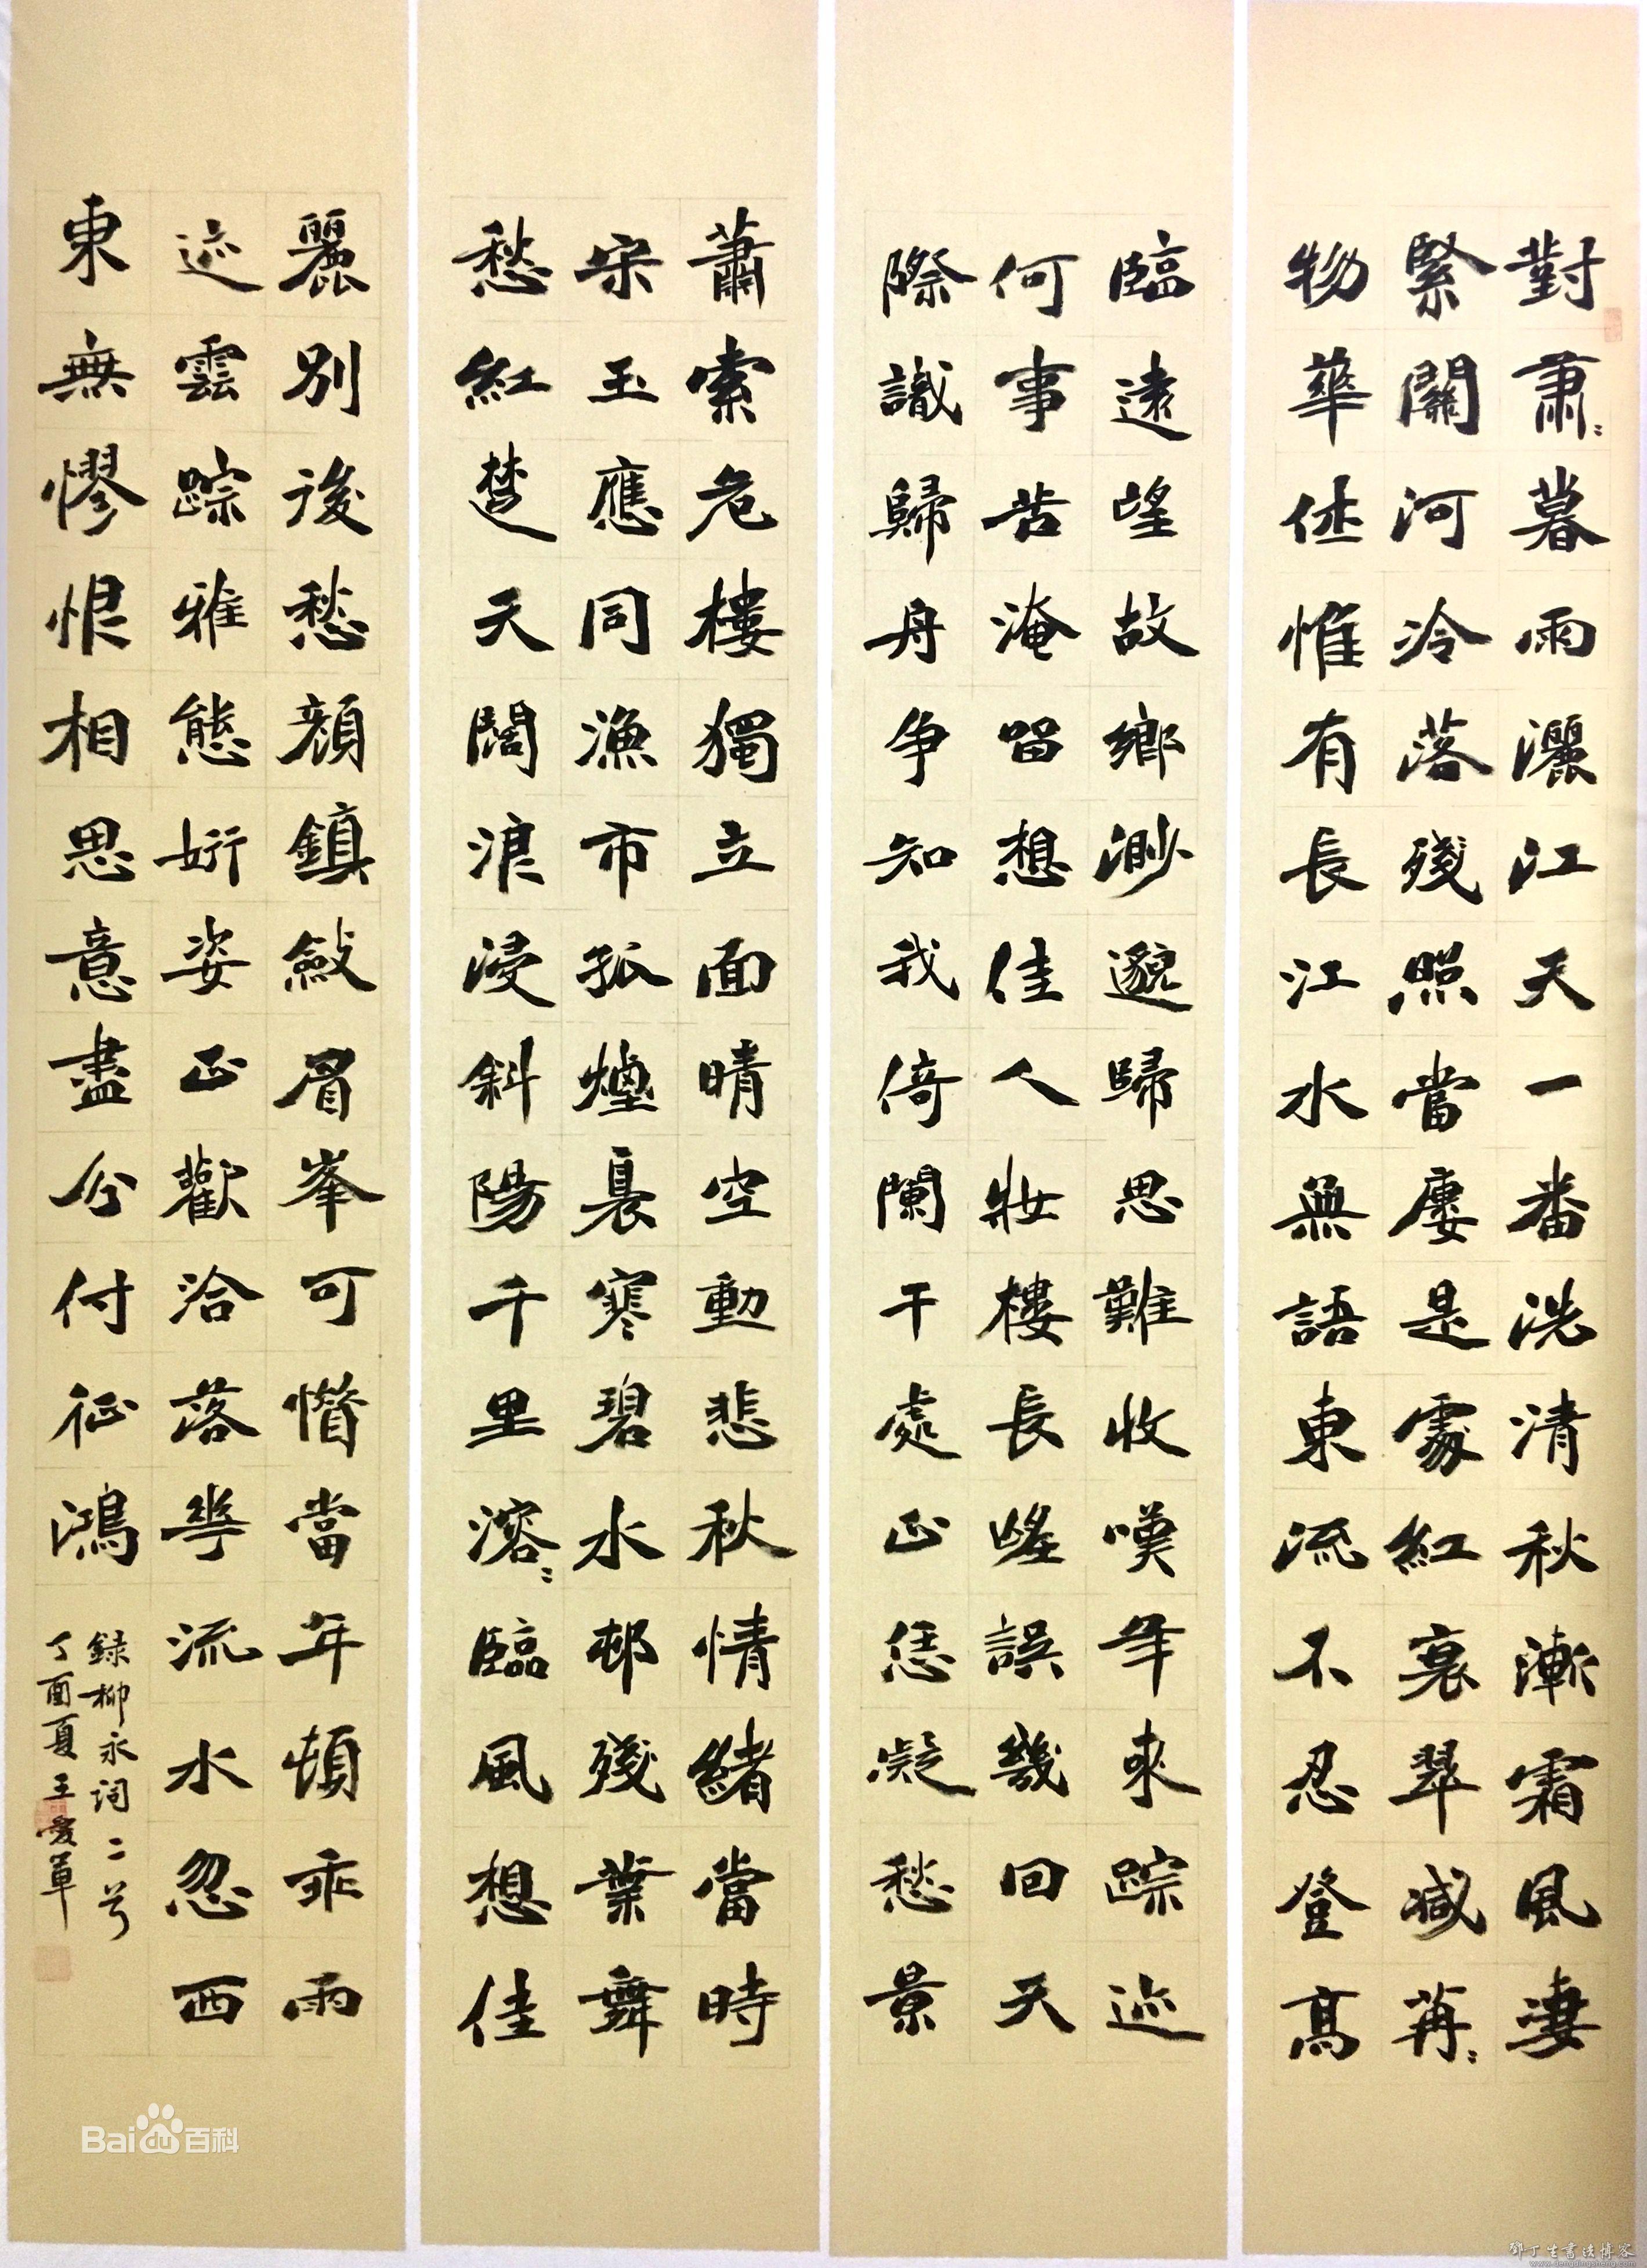 對肅〻暮雨灑江天一番洗清秋漸霜風淒
緊關河冷落殘照當廔是處紅衰翠減苒〻
物華休惟有長江水無語東流不忍登高
臨遠望故鄉渺邈歸思難收嘆年來踪迹
何事苦淹留想佳人妝樓長嗟誤幾回天
際識歸舟争知我倚闌干處正恁凝愁景
蕭索危樓獨立面晴空動悲秋情緒當時
宋玉應同漁市孤煙裊寒碧水邨殘葉舞
愁紅楚天闊浪浸斜陽千里溶〻臨風想佳
麗別後愁顏鎮斂眉峯可惜當年頓乖雨
迹雲踪雅態妍姿正歡洽落花流水忽西
東無憀恨相思意盡分付征鴻
録柳永詞二首
丁酉夏王愛軍
Baidu百科
鄧丁生書法博客
www.dengdingsheng.com